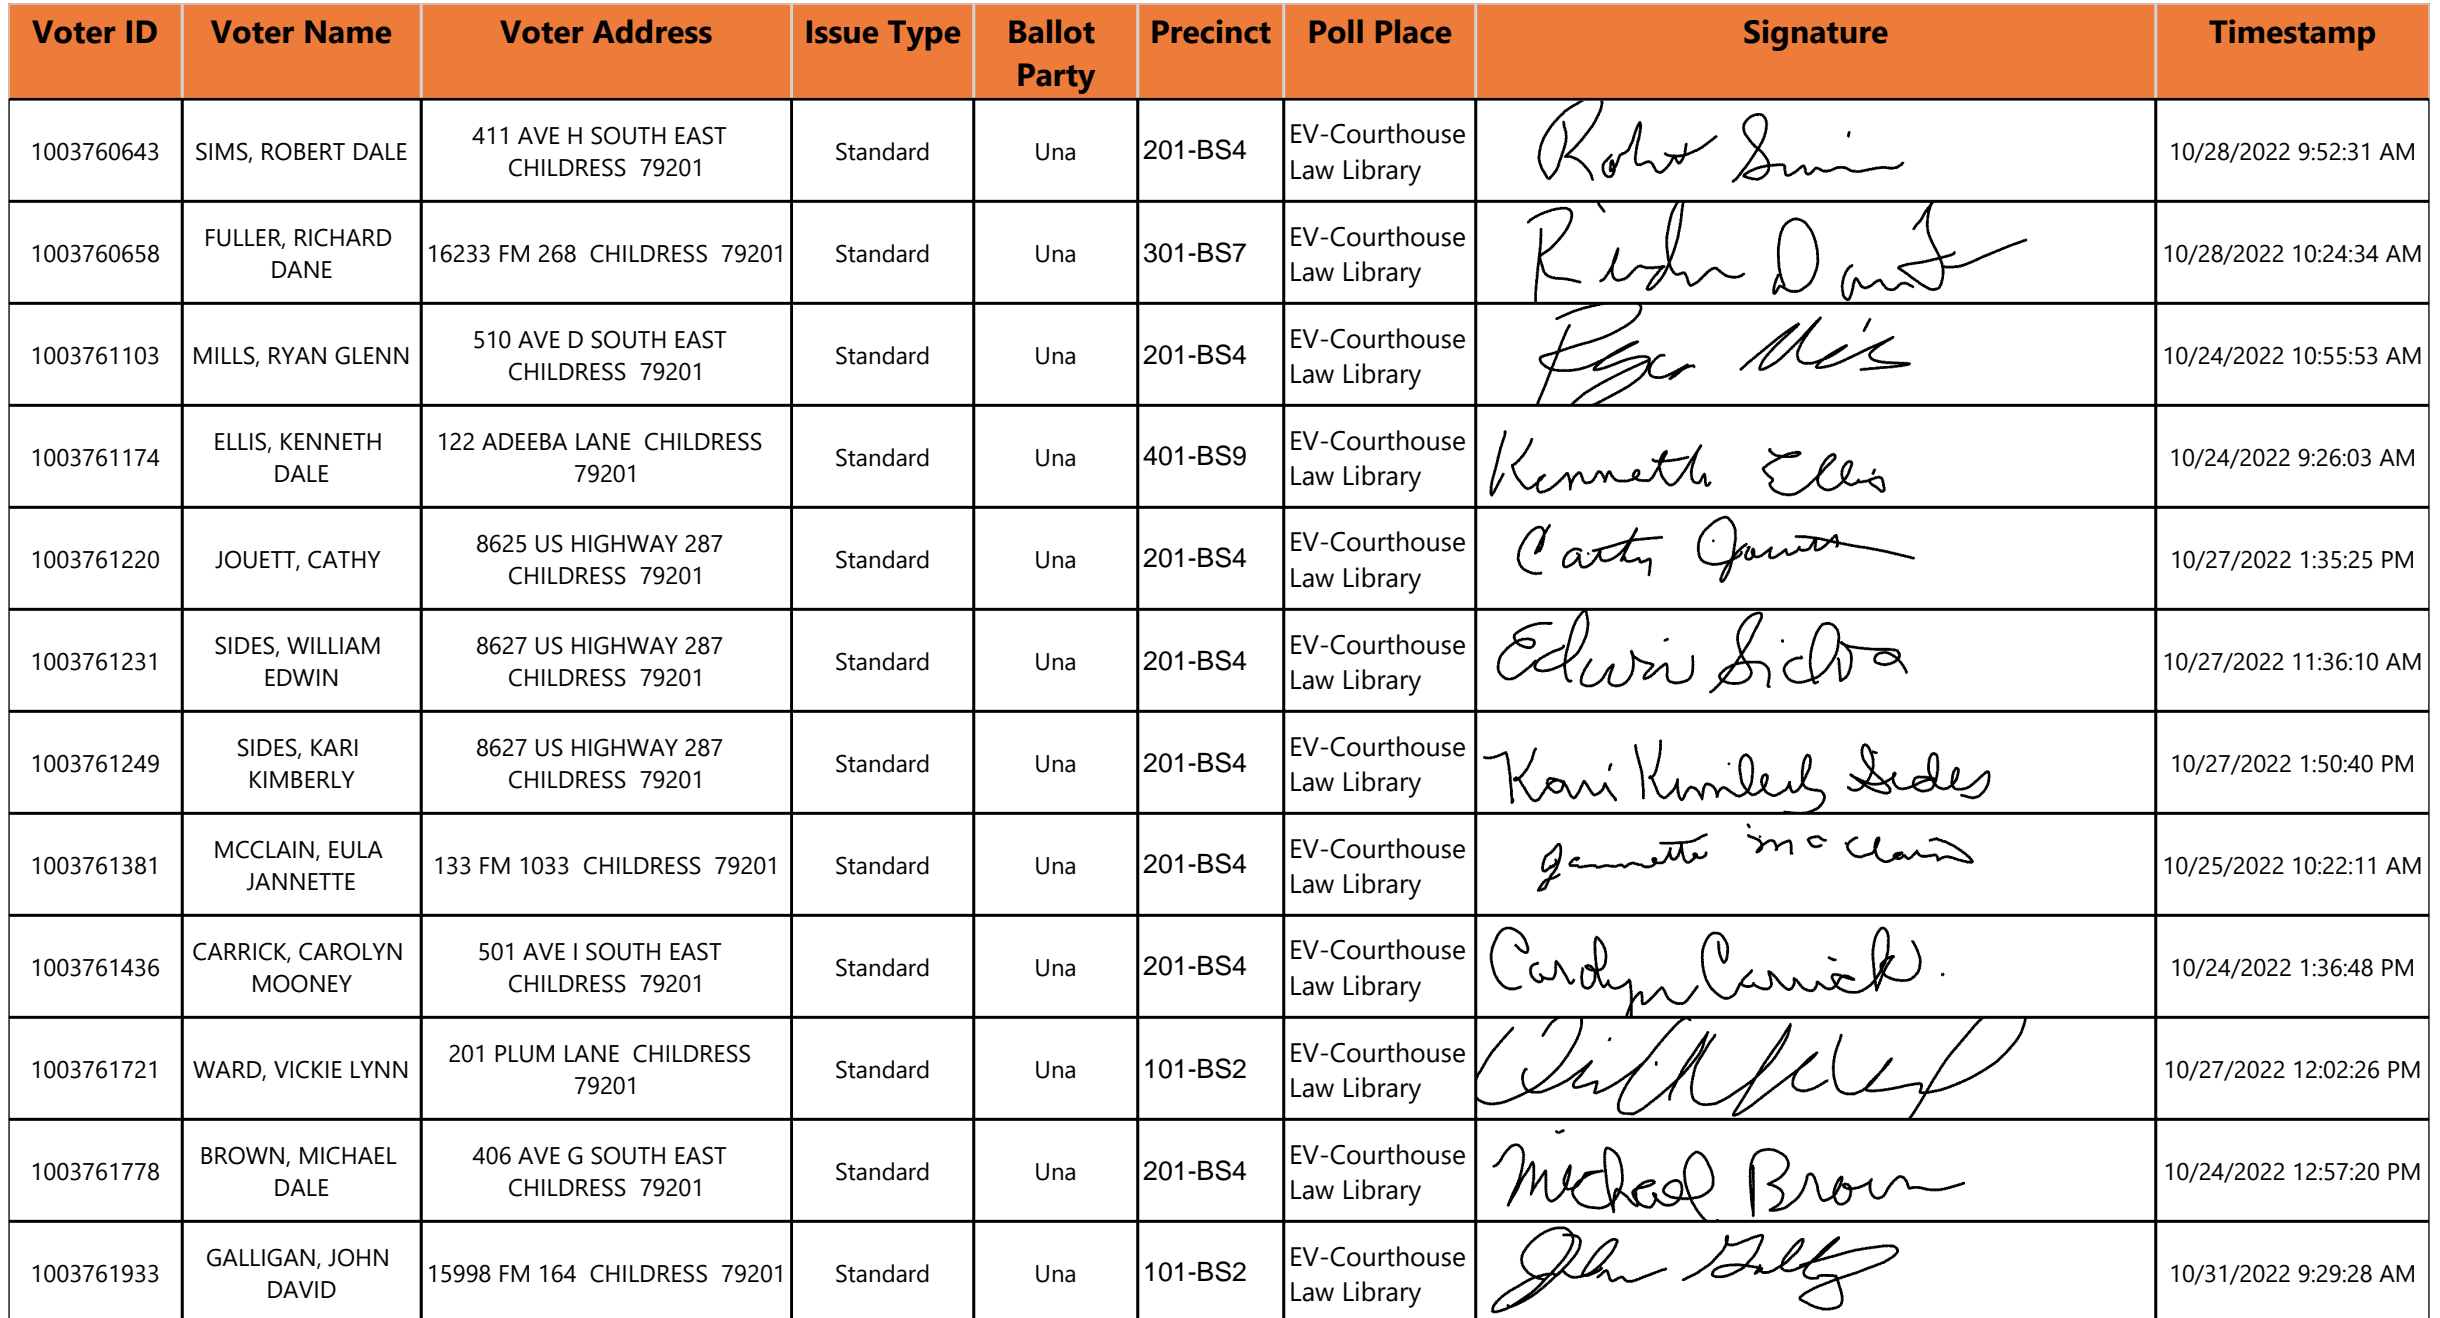 Voter ID Voter Name Voter Address Issue Type Ballot Party Precinct Poll Place Signature Timestamp
1003760643 SIMS, ROBERT DALE 411 AVE H SOUTH EAST CHILDRESS 79201 Standard Una 201-BS4 EV-Courthouse Law Library Robert Sims 10/28/2022 9:52:31 AM
1003760658 FULLER, RICHARD DANE 16233 FM 268 CHILDRESS 79201 Standard Una 301-BS7 EV-Courthouse Law Library 10/28/2022 10:24:34 AM
1003761103 MILLS, RYAN GLENN 510 AVE D SOUTH EAST CHILDRESS 79201 Standard Una 201-BS4 EV-Courthouse Law Library 10/24/2022 10:55:53 AM
1003761174 ELLIS, KENNETH DALE 122 ADEEBA LANE CHILDRESS 79201 Standard Una 401-BS9 EV-Courthouse Law Library Kenneth Ellis 10/24/2022 9:26:03 AM
1003761220 JOUETT, CATHY 8625 US HIGHWAY 287 CHILDRESS 79201 Standard Una 201-BS4 EV-Courthouse Law Library Cathy Jouett 10/27/2022 1:35:25 PM
1003761231 SIDES, WILLIAM EDWIN 8627 US HIGHWAY 287 CHILDRESS 79201 Standard Una 201-BS4 EV-Courthouse Law Library Edwin Sides 10/27/2022 11:36:10 AM
1003761249 SIDES, KARI KIMBERLY 8627 US HIGHWAY 287 CHILDRESS 79201 Standard Una 201-BS4 EV-Courthouse Law Library Kari Kimberly Sides 10/27/2022 1:50:40 PM
1003761381 MCCLAIN, EULA JANNETTE 133 FM 1033 CHILDRESS 79201 Standard Una 201-BS4 EV-Courthouse Law Library Jannette McClain 10/25/2022 10:22:11 AM
1003761436 CARRICK, CAROLYN MOONEY 501 AVE I SOUTH EAST CHILDRESS 79201 Standard Una 201-BS4 EV-Courthouse Law Library Carolyn Carrick. 10/24/2022 1:36:48 PM
1003761721 WARD, VICKIE LYNN 201 PLUM LANE CHILDRESS 79201 Standard Una 101-BS2 EV-Courthouse Law Library 10/27/2022 12:02:26 PM
1003761778 BROWN, MICHAEL DALE 406 AVE G SOUTH EAST CHILDRESS 79201 Standard Una 201-BS4 EV-Courthouse Law Library Michael Brown 10/24/2022 12:57:20 PM
1003761933 GALLIGAN, JOHN DAVID 15998 FM 164 CHILDRESS 79201 Standard Una 101-BS2 EV-Courthouse Law Library John 10/31/2022 9:29:28 AM